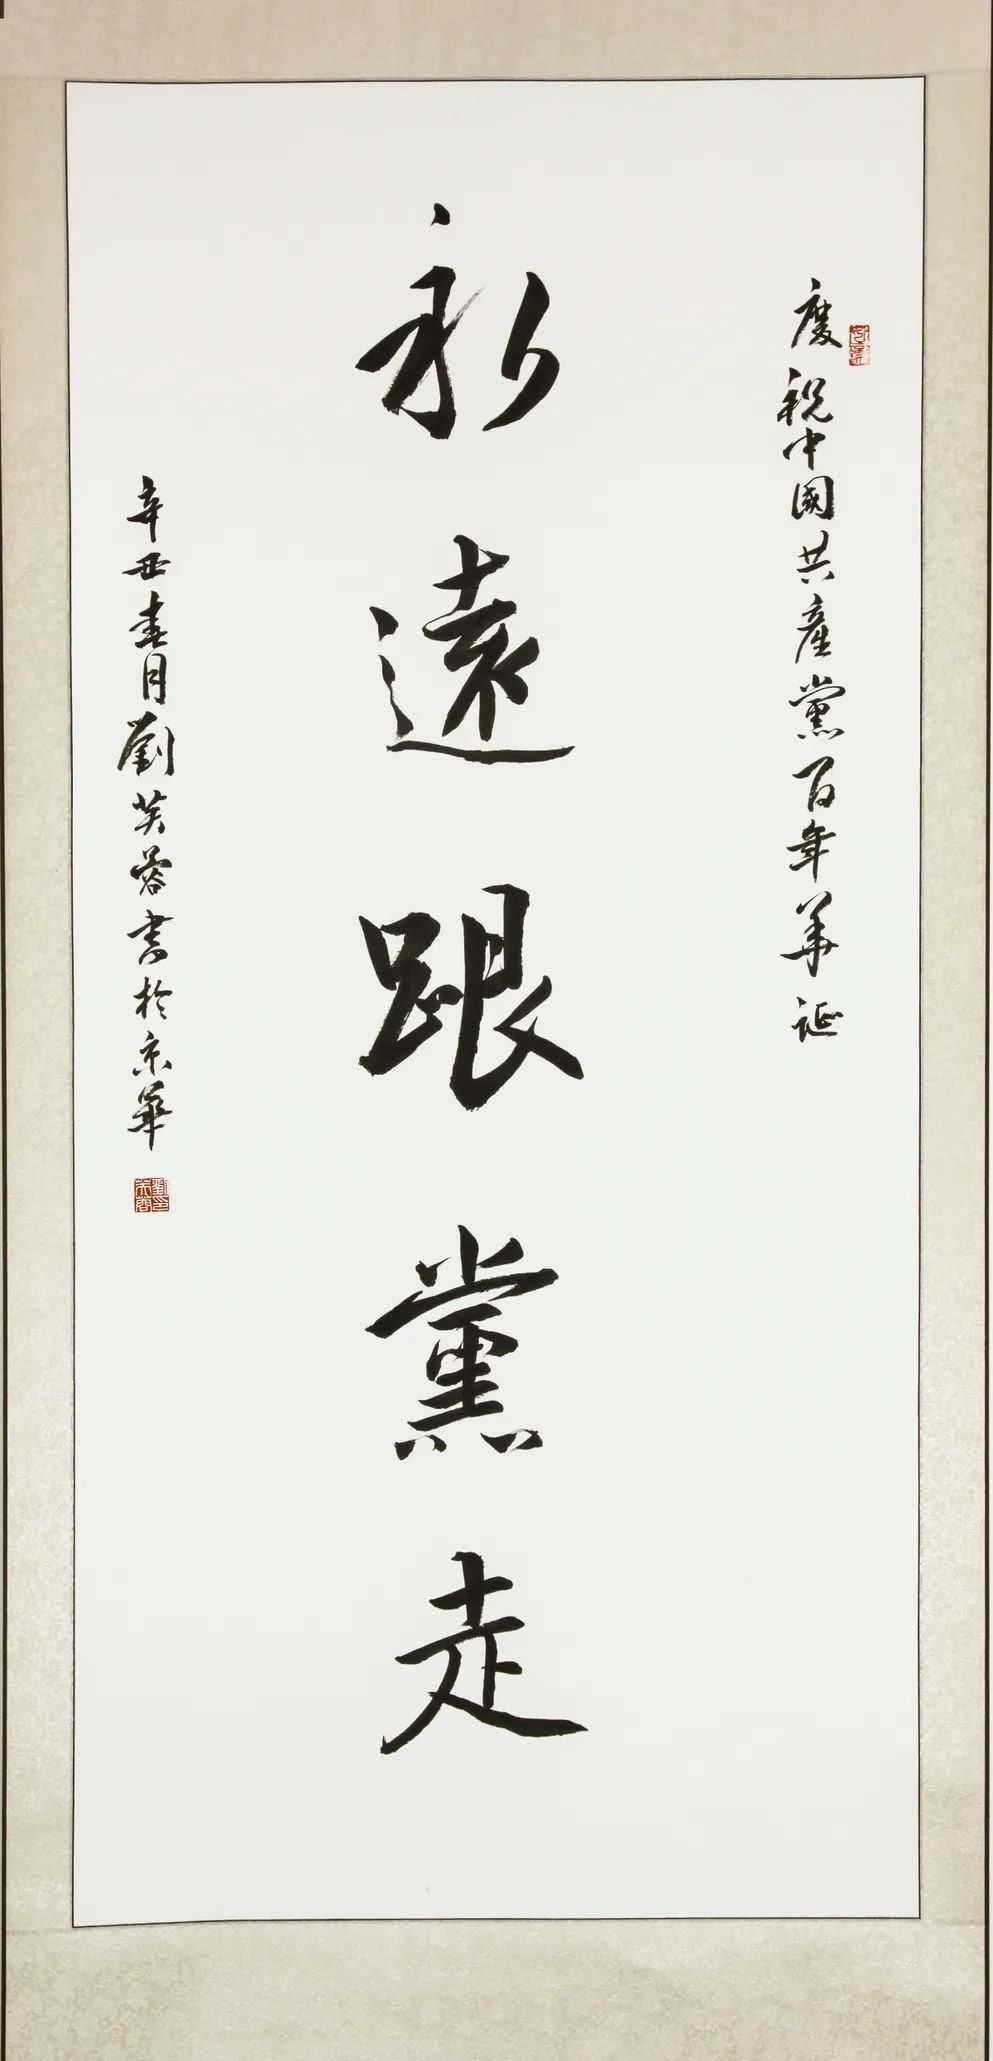 慶祝中國共產黨百年華誕
永遠跟黨走
辛丑春月劉芙蓉書於京華